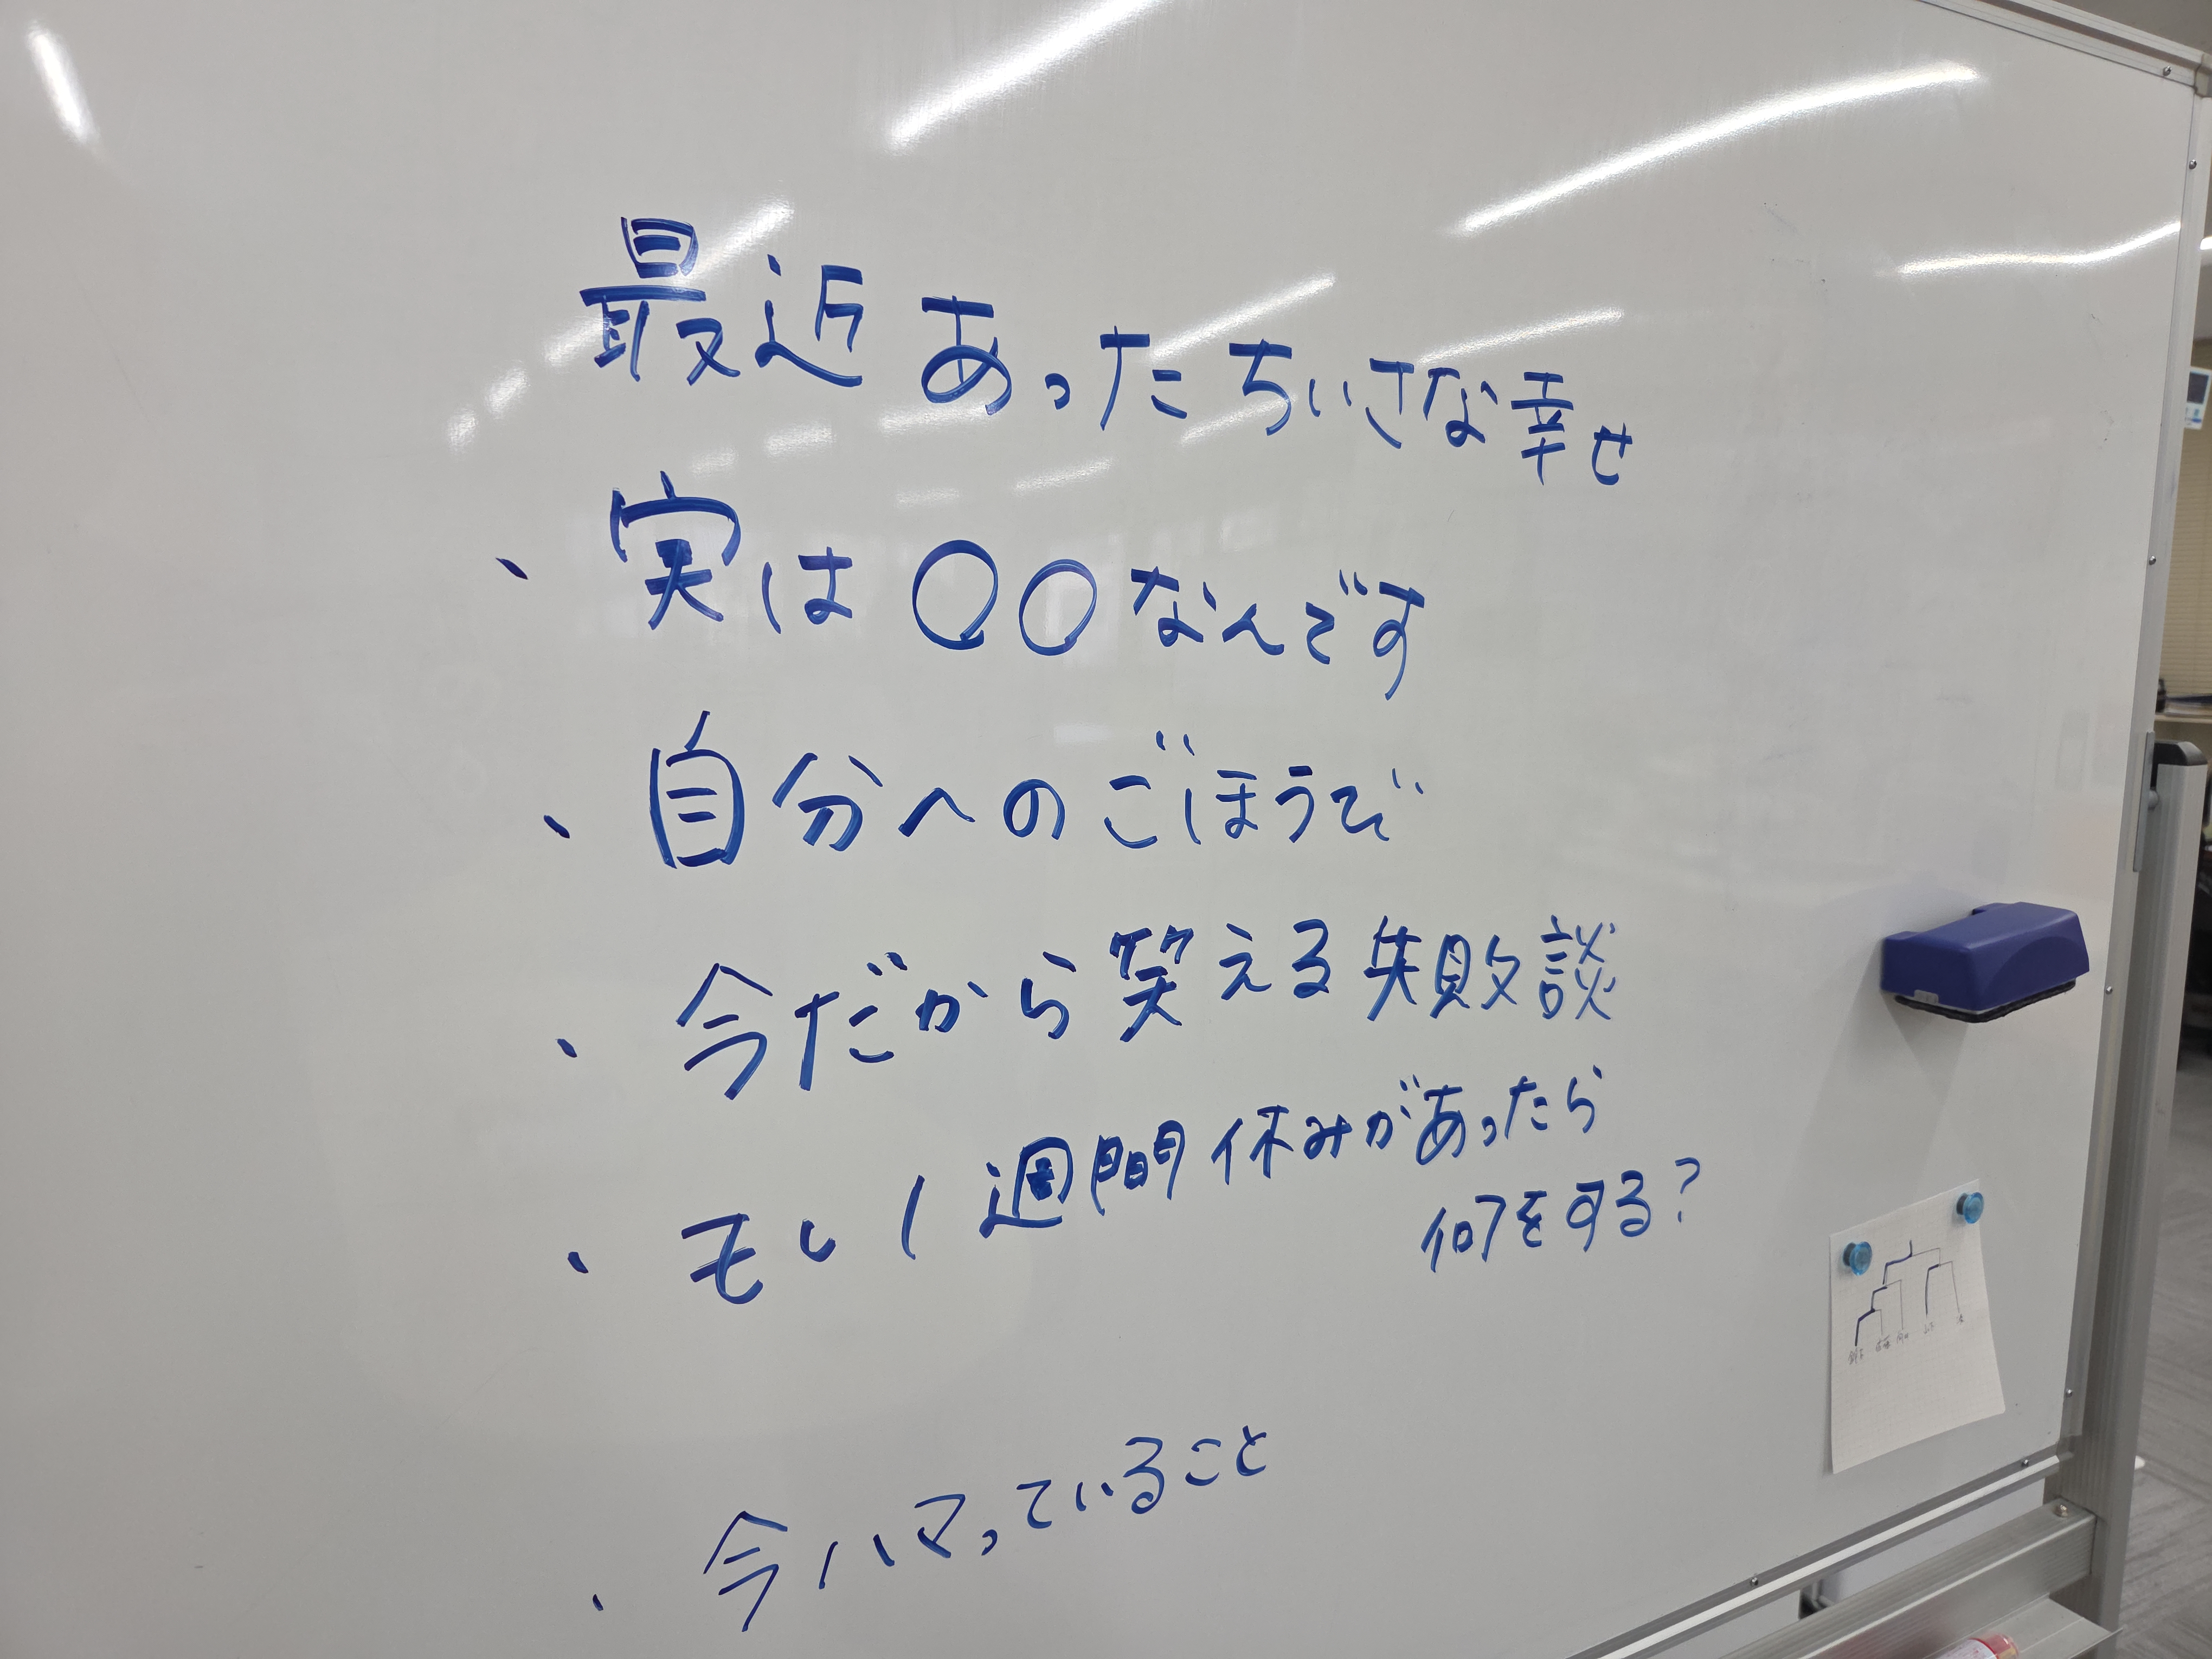 最近あったちいさな幸せ
・実は〇〇なんです
・自分へのごほうび
・今だから笑える失敗談
・もし1週間休みがあったら
何をする?
・今ハマっていること